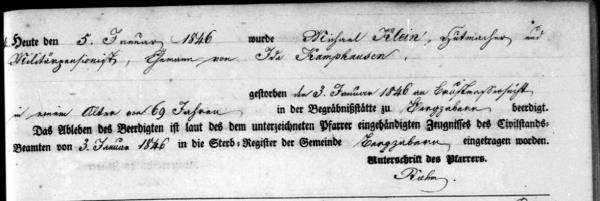 Heute den 5. Januar 1846 wurde Michael Klein, Hutmacher und
Militärpensionist, Ehemann von Ida Kamphausen,
gestorben den 3. Januar 1846 an Brustwassersucht
in einem Alter von 69 Jahren in der Begräbnißstätte zu Bergzabern beerdigt.
Das Ableben des Beerdigten ist laut des dem unterzeichneten Pfarrer eingehändigten Zeugnisses des Civilstands-
Beamten von 3. Januar 1846 in die Sterb-Register der Gemeinde Bergzabern eingetragen worden.
Unterschrift des Pfarrers.